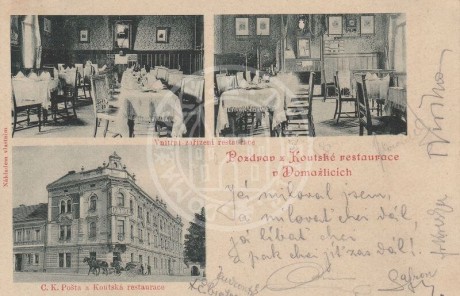 Nákladem vlastním
Vnitřní zařízení restaurace
Pozdrav z Koutské restaurace
v Domažlicích
Já miloval jsem,
a milovat chci dál,
Já líbat chci
a pak chci jít zas dál!
C. K. Pošta a Koutská restaurace